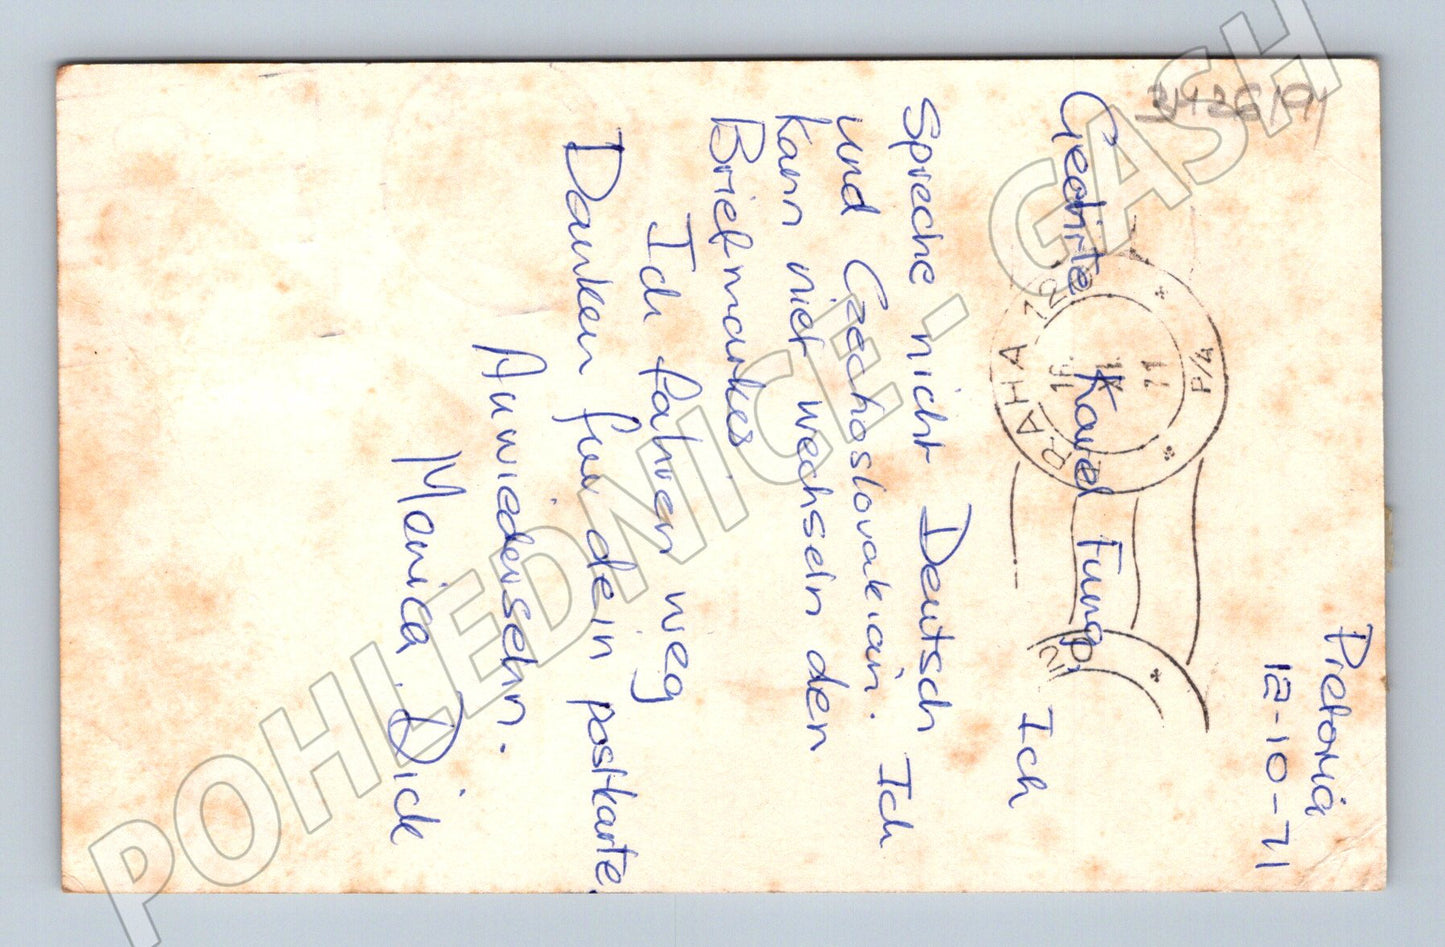 Pretoria
12-10-71
Geehrte Karel Fump,
Ich
Spreche nicht Deutsch
und Czechoslovakian. Ich
kann niet wechseln den
Briefmarken.
Ich fahren weg
Danken fur dein postkarte.
Auwiedersehn.
Monica. Dick
PRAHA 120
16.
71
P/4
POHLEDNICE - GASH